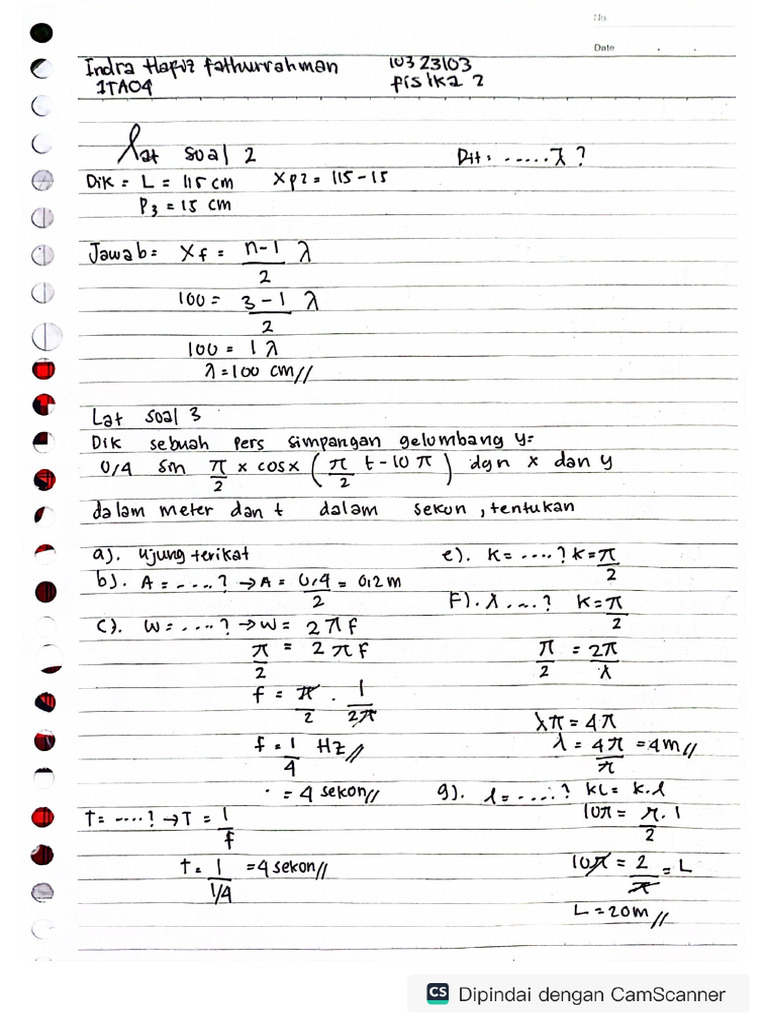 No.
Date
Indra Hafiz fathurrahman 10323103
1TA04 fisika 2
Lat soal 2 Dit: ..... λ ?
Dik = L = 115 cm Xp2 = 115 - 15
P3 = 15 cm
Jawab = Xf = n-1/2 λ
100 = 3-1/2 λ
100 = 1 λ
λ = 100 cm//
Lat soal 3
Dik sebuah pers simpangan gelombang y=
0,4 sin π/2 x cosx (π/2 t - 10 π) dgn x dan y
dalam meter dan t dalam sekon, tentukan
a). Ujung terikat
b). A = ....? → A = 0,4/2 = 0,2 m
c). W = ....? → W = 2πf
π/2 = 2πf
f = π/2 . 1/2π
f = 1/4 HZ//
= 4 sekon//
T = ....? → T = 1/f
T = 1/1/4 = 4 sekon//
e). K = ....? K = π/2
F). λ ....? K = π/2
π/2 = 2π/λ
λπ = 4π
λ = 4π/π = 4m//
g). l = ....? KL = K.l
10π = π/2 . l
10π = 2/π = L
L = 20m//
CS Dipindai dengan CamScanner